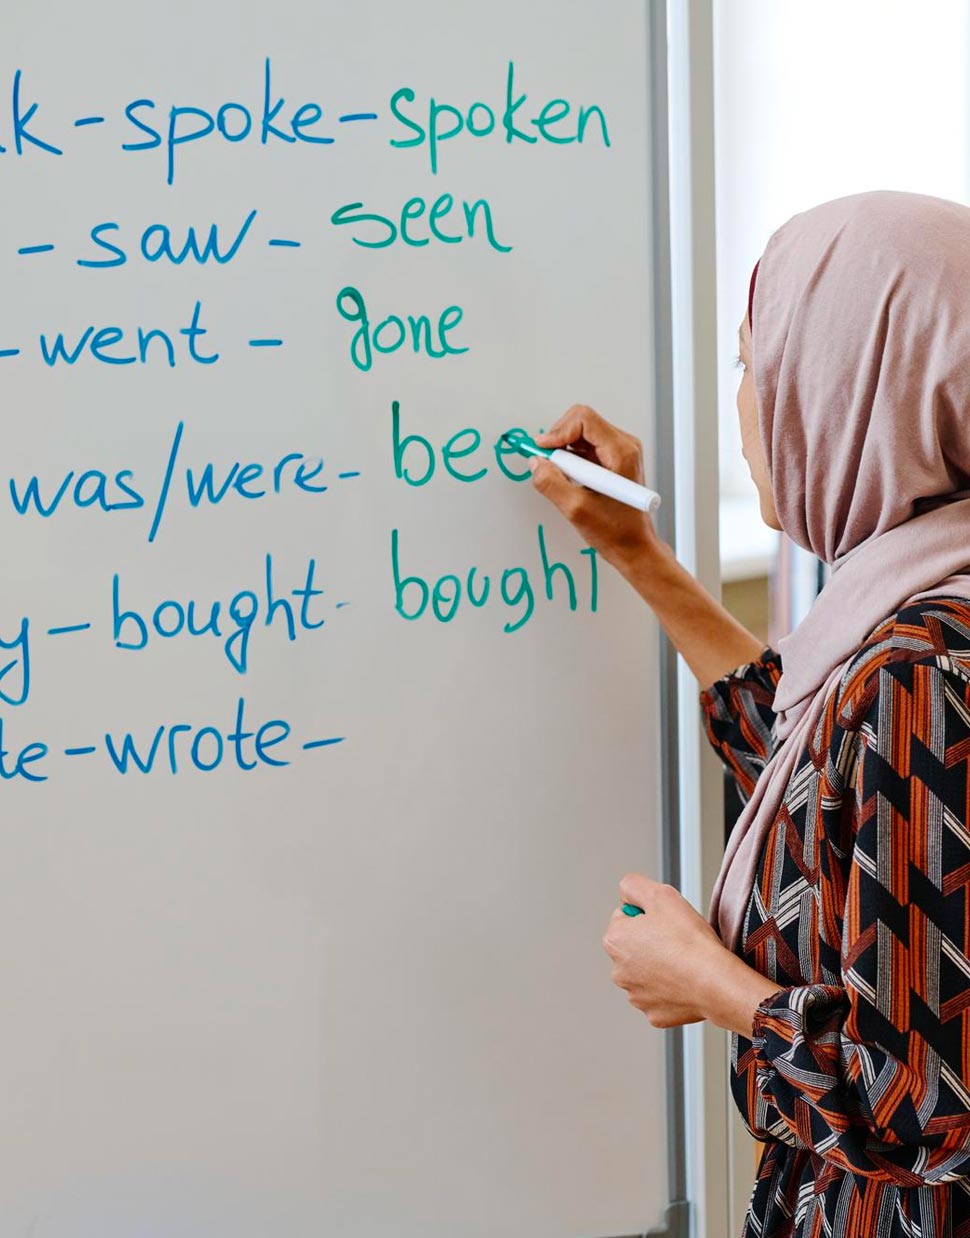 k - spoke - spoken
- saw - seen
- went - gone
was/were - bee
y - bought - bought
te - wrote -